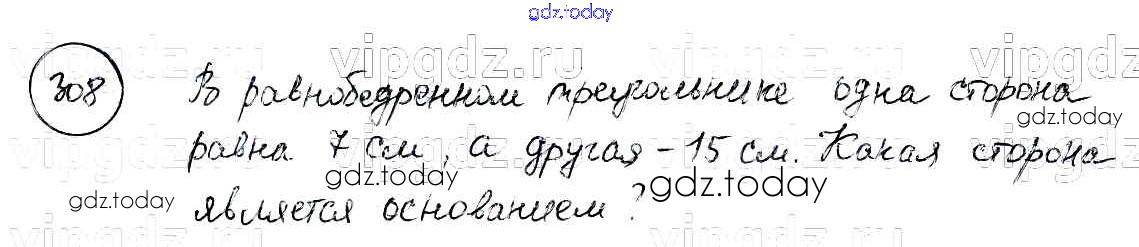 gdz.today
vipgdz.ru vipgdz.ru vipgdz.ru
308 В равнобедренном треугольнике одна сторона
gdz.today
равна 7 см, а другая - 15 см. Какая сторона
gdz.today gdz.today
является основанием?